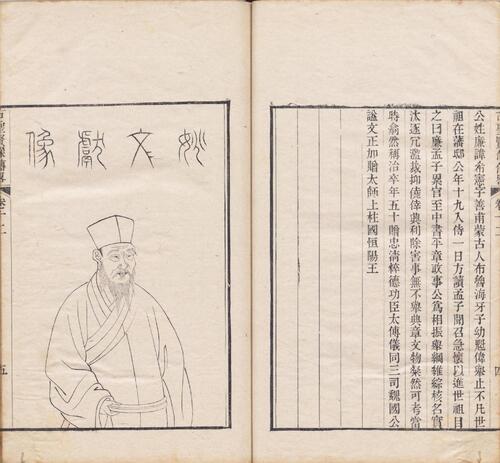 公姓廉諱希憲字善甫蒙古人布魯海牙子幼魁偉舉止不凡世
祖在藩邸公年十九入侍一日方讀孟子聞召急懷以進世祖目
之曰廉孟子累官至中書平章政事公爲相振舉綱維綜核名實
汰逐冗濫裁抑僥倖興利除害事無不舉典章文物粲然可考當
時翕然稱治卒年五十贈忠清粹德功臣太傅儀同三司魏國公
諡文正加贈太師上柱國恒陽王
四
姚文獻像
卷十二
五